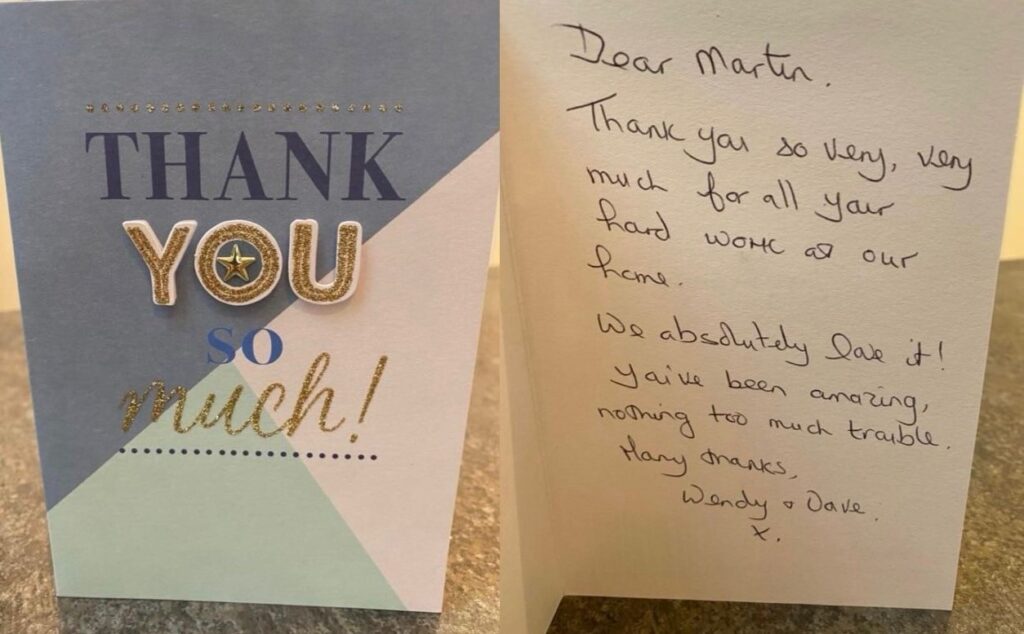 THANK
YOU
SO
much!
Dear Martin.
Thank you so very, very
much for all your
hard work at our
home.
We absolutely love it!
You've been amazing,
nothing too much trouble.
Many thanks,
Wendy & Dave.
x.